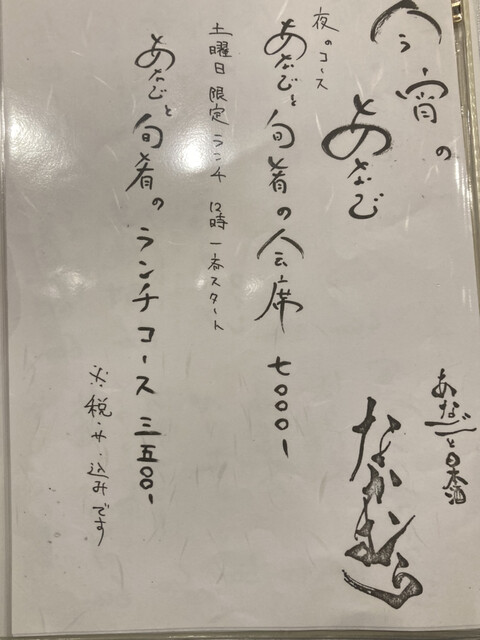 今宵の
あなご
あなごと日本酒
なかむら
夜のコース
あなごと旬肴の会席 七〇〇〇-
土曜日限定ランチ 12時一斉スタート
あなごと旬肴のランチコース 三五〇〇-
※税・サ・込みです